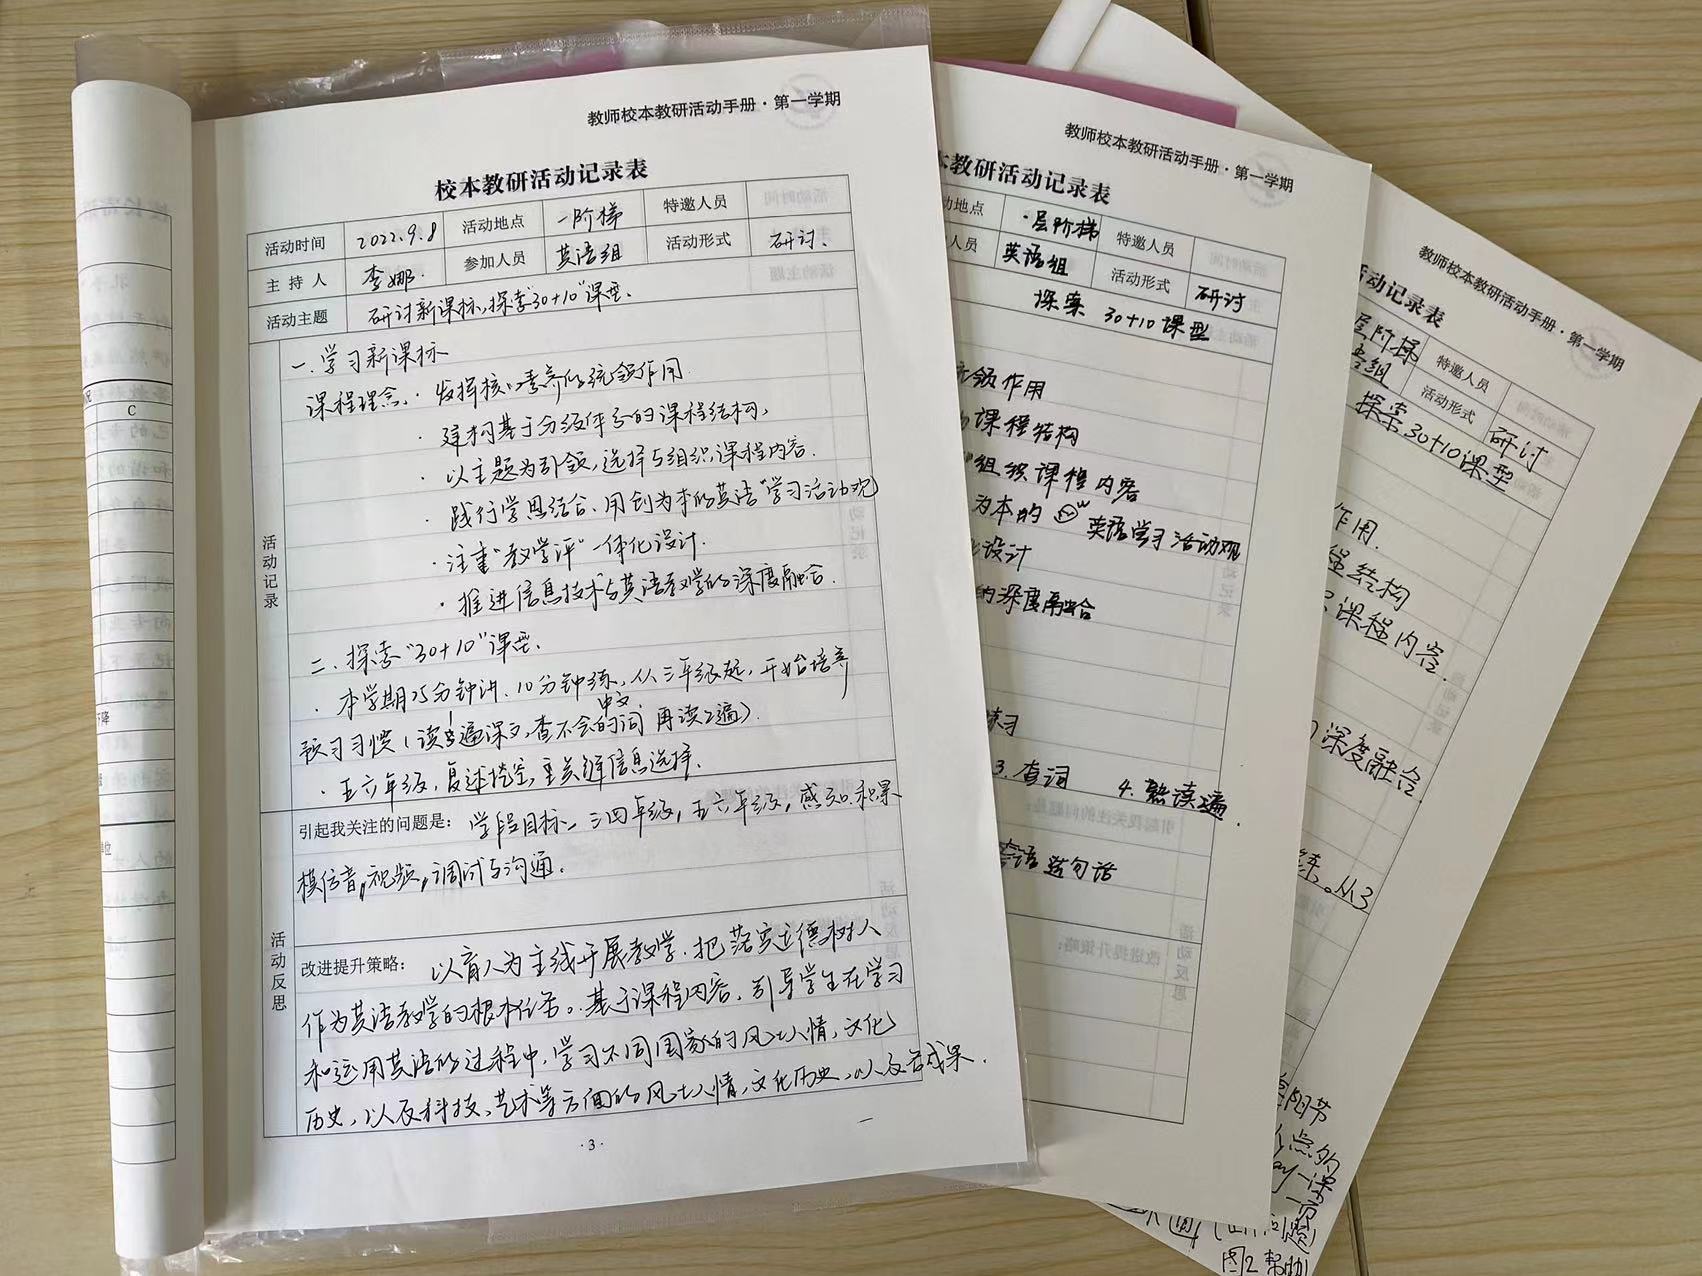 教师校本教研活动手册·第一学期
校本教研活动记录表
活动时间 2022.9.8 活动地点 一阶梯 特邀人员
主持人 李娜. 参加人员 英语组 活动形式 研讨.
活动主题 研讨新课标,探索"30+10"课型.
活动记录
一.学习新课标
课程理念.·发挥核心素养的统领作用
·建构基于分级体系的课程结构,
·以主题为引领,选择与组织课程内容.
·践行学思结合、用创为本的英语"学习活动观
·注重"教学评"一体化设计.
·推进信息技术与英语教学的深度融合.
二.探索"30+10"课型.
·本学期25分钟讲.10分钟练,从三年级起,开始培养
中文
预习习惯(读遍课文,查不会的词 再读2遍).
·五六年级,复述挖空,重关键信息选择.
活动反思
引起我关注的问题是: 学段目标、三四年级,五六年级,感知积累
模仿音,视频,调试与沟通.
改进提升策略: 以育人为主线开展教学.把落实立德树人
作为英语教学的根本任务。.基于课程内容,引导学生在学习
和运用英语的过程中,学习不同国家的风土人情,文化
历史,以及科技、艺术等方面的风土人情,文化历史,以及名成果.
·3·
教师校本教研活动手册·第一学期
本教研活动记录表
动地点 ·层阶梯 特邀人员
人员 英语组 活动形式 研讨
探索 30+10课型
统领作用
课程结构
组织课程内容
为本的 英语学习活动观
设计
的深度融合
练习
3.查词 4.熟读遍.
英语造句话
教师校本教研活动手册·第一学期
活动记录表
层阶梯 特邀人员
语组 活动形式 研讨
探索30+10课型
作用.
程结构
课程内容.
深度融合
练。从3
阳节
点的
一课
图2帮助
C